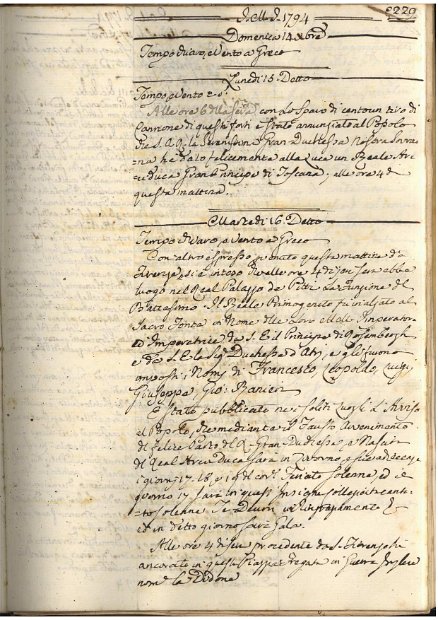 Dell'A. 1794
2220
Domenica 14 xbre
Tempo Vario, e Vento a Greco
Lunedi 15. Detto
Tempo, e Vento
Alle ore 6 della sera con lo sparo di centoun tiro di
Cannone di questi forti è stato annunziato al Popolo
che S. A. R. la Granduchessa Nostra Sovra=
na ha dato felicemente alla luce un Reale Arci
duca Gran Principe di Toscana, alle ore 4 di
questa mattina.
Martedi 16. Detto
Tempo Vario, e Vento a Greco
Con altro espresso questa mattina da
Firenze, si è inteso che alle ore 4 di jeri sera ebbe
luogo nel Real Palazzo de Pitti la funzione del
Battesimo. Il Reale Primogenito fu inalzato al
Sacro Fonte in Nome delle Loro Maestà Imperatore
ed Imperatrice da S. E. il Principe di Rosembergh,
e da S. E. la Sig. Duchessa d'Atri, e gli furono
imposti i Nomi di Francesco Leopoldo, Luigi
Giuseppe, Gio: Ranieri
È stato pubblicato nei soliti luoghi l'Avviso
al Popolo, che mediante il Fausto Avvenimento
di felice Parto della Gran Duchessa, e Nascita
del Real Arciduca sarà in
giorni 17. 18, e 19 del corr.
giorno 17 sarà in
Te Deum in Ringraziamento
ed in detto giorno sarà Gala.
Alle ore 4 di sera procedente da S. Fiorenzo ha
ancorato in questa Spiaggia Fregata in Guerra Inglese
nom.<sup>a</sup> la Didone